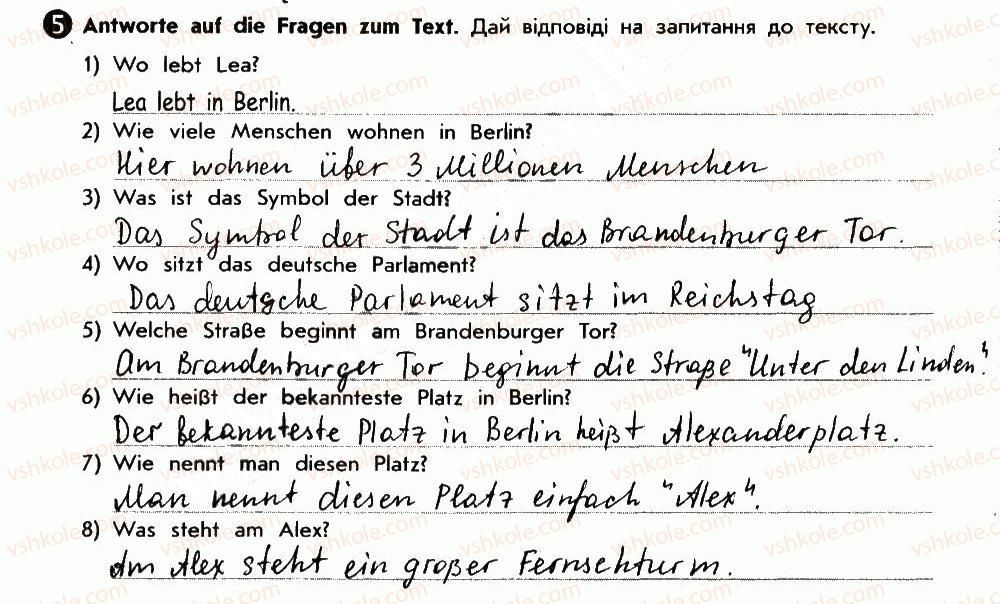 5 Antworte auf die Fragen zum Text. Дай відповіді на запитання до тексту.
1) Wo lebt Lea?
Lea lebt in Berlin.
2) Wie viele Menschen wohnen in Berlin?
Hier wohnen über 3 Millionen Menschen
3) Was ist das Symbol der Stadt?
Das Symbol der Stadt ist das Brandenburger Tor.
4) Wo sitzt das deutsche Parlament?
Das deutsche Parlament sitzt im Reichstag
5) Welche Straße beginnt am Brandenburger Tor?
Am Brandenburger Tor beginnt die Straße "Unter den Linden".
6) Wie heißt der bekannteste Platz in Berlin?
Der bekannteste Platz in Berlin heißt Alexanderplatz.
7) Wie nennt man diesen Platz?
Man nennt diesen Platz einfach "Alex".
8) Was steht am Alex?
Am Alex steht ein großer Fernsehturm.